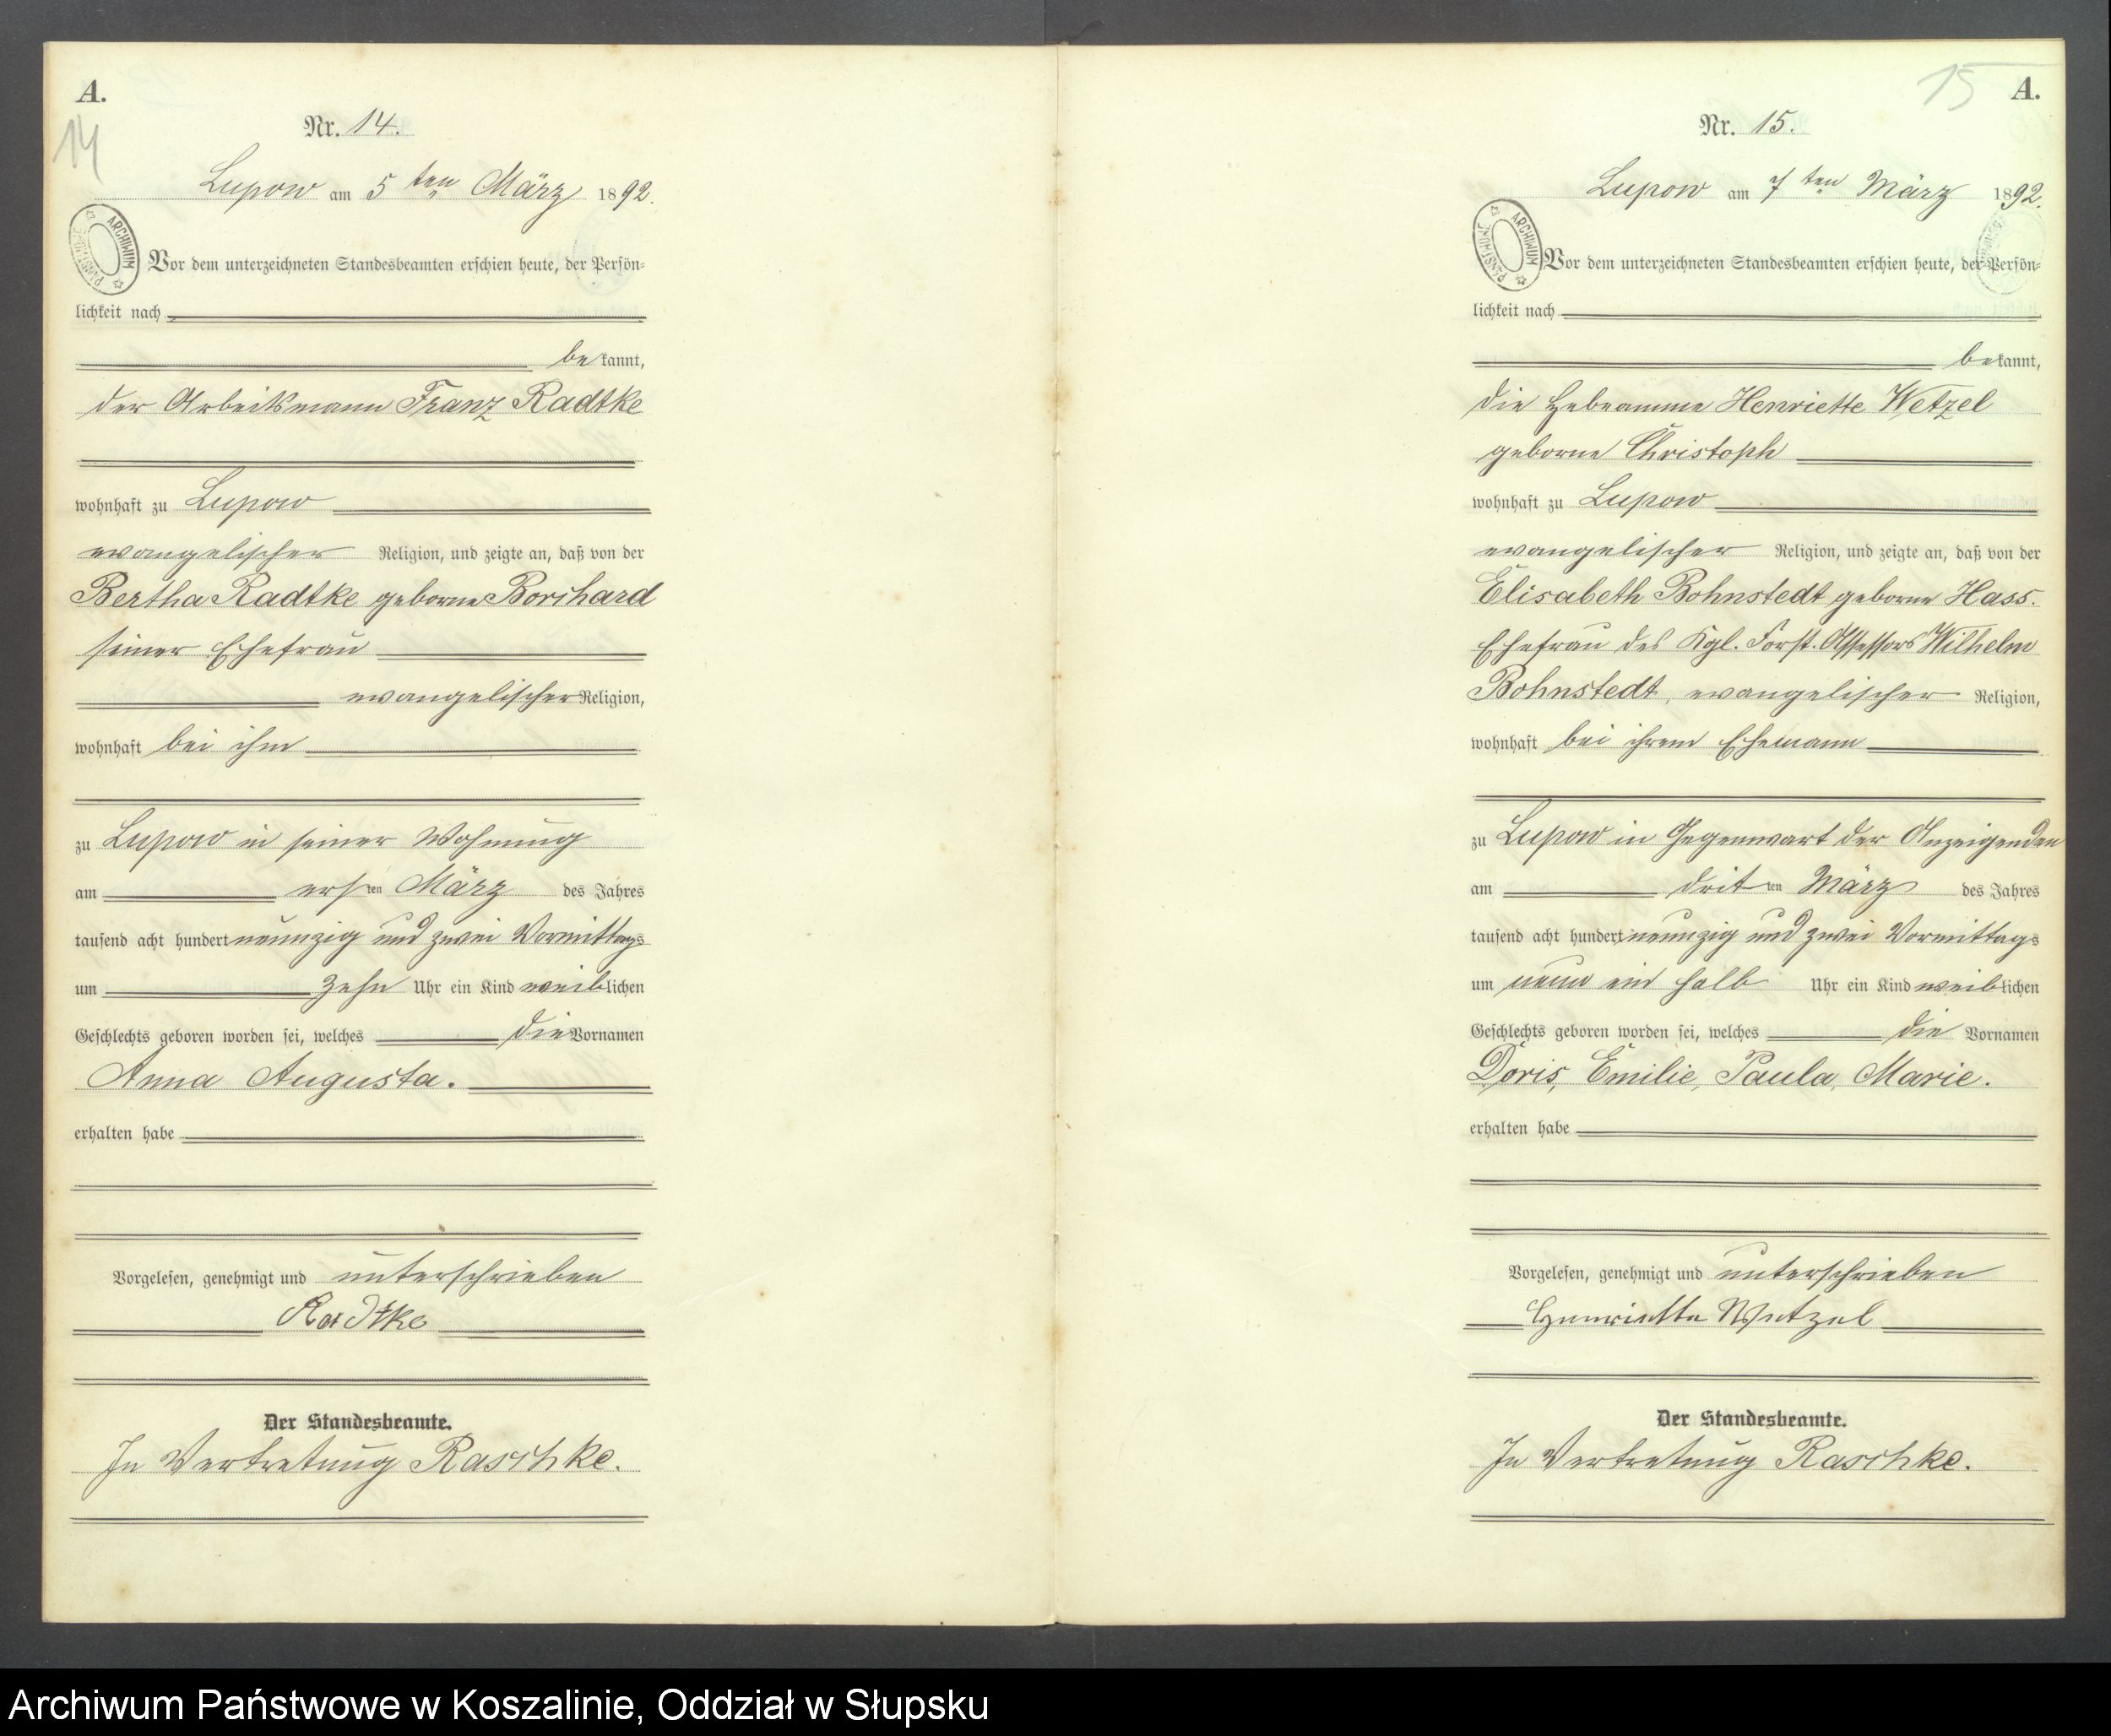 A.
14
Nr. 14.
Lupow am 5 ten März 1892.
ARCHIWUM PAŃSTWOWE
Vor dem unterzeichneten Standesbeamten erschien heute, der Persön-
lichkeit nach
bekannt,
der Arbeitsmann Franz Radtke
wohnhaft zu Lupow
evangelischer Religion, und zeigte an, daß von der
Bertha Radtke geborne Borchard
seiner Ehefrau
evangelischer Religion,
wohnhaft bei ihm
zu Lupow in seiner Wohnung
am ersten März des Jahres
tausend acht hundert neunzig und zwei Vormittags
um zehn Uhr ein Kind weiblichen
Geschlechts geboren worden sei, welches die Vornamen
Anna Augusta.
erhalten habe
Vorgelesen, genehmigt und unterschrieben
Radtke
Der Standesbeamte.
In Vertretung Raschke.
15
A.
Nr. 15.
Lupow am 7 ten März 1892.
ARCHIWUM PAŃSTWOWE
Vor dem unterzeichneten Standesbeamten erschien heute, der Persön-
lichkeit nach
bekannt,
die Hebeamme Henriette Wetzel
geborne Christoph
wohnhaft zu Lupow
evangelischer Religion, und zeigte an, daß von der
Elisabeth Bohnstedt geborne Hass.
Ehefrau des Kgl. Forst. Assessors Wilhelm
Bohnstedt, evangelischer Religion,
wohnhaft bei ihrem Ehemann
zu Lupow in Gegenwart der Anzeigenden
am dritten März des Jahres
tausend acht hundert neunzig und zwei Vormittags
um neun ein halb Uhr ein Kind weiblichen
Geschlechts geboren worden sei, welches die Vornamen
Doris, Emilie, Paula, Marie.
erhalten habe
Vorgelesen, genehmigt und unterschrieben
Henriette Wetzel
Der Standesbeamte.
In Vertretung Raschke.
Archiwum Państwowe w Koszalinie, Oddział w Słupsku